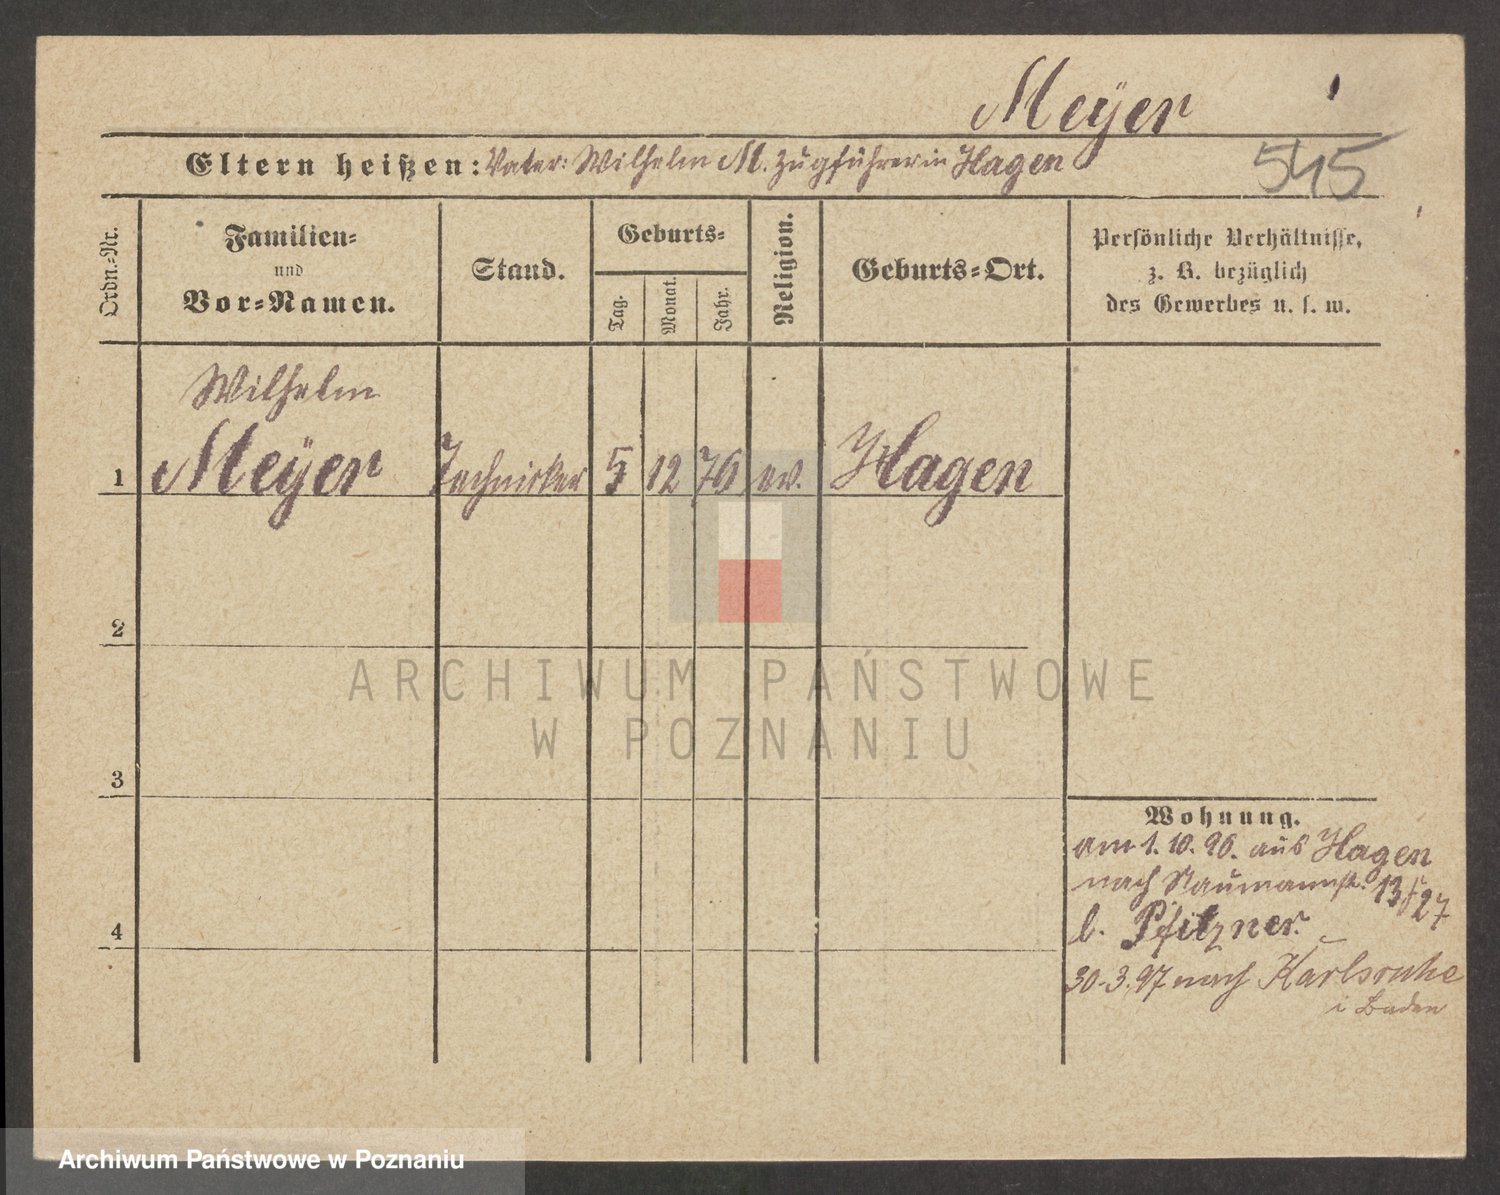 Meyer
545
Eltern heißen: Vater: Wilhelm M. Zugführer in Hagen
Ordn.-Nr.
Familien-
und
Vor-Namen.
Stand.
Geburts-
Tag.
Monat.
Jahr.
Religion.
Geburts-Ort.
Persönliche Verhältnisse,
z. B. bezüglich
des Gewerbes u. s. w.
Wilhelm
1 Meyer Techniker 5 12 76 ev. Hagen
2
3
4
Wohnung.
am 1. 10. 96. aus Hagen
nach Naumannstr. 13/27
b. Pfitzner.
30.3.97 nach Karlsruhe
i Baden
ARCHIWUM PAŃSTWOWE
W POZNANIU
Archiwum Państwowe w Poznaniu